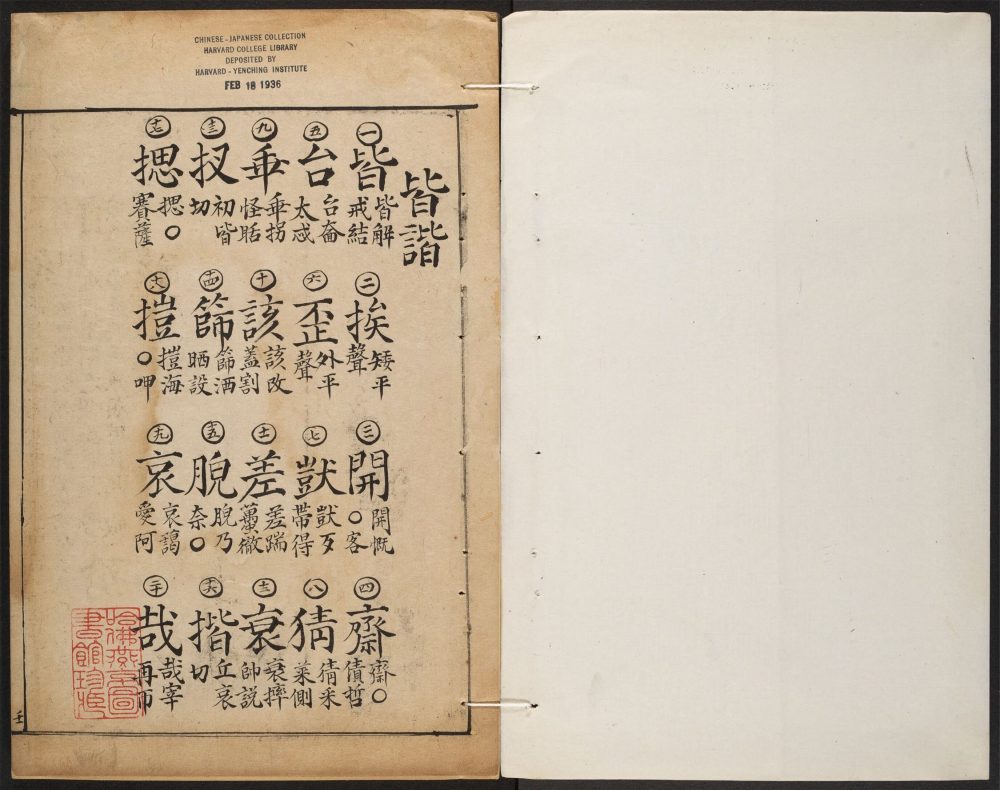 CHINESE-JAPANESE COLLECTION
HARVARD COLLEGE LIBRARY
DEPOSITED BY
HARVARD-YENCHING INSTITUTE
FEB 18 1936
皆諧
一 皆 皆解戒結
二 挨 矮平聲
三 開 開慨〇客
四 齋 齋〇債哲
五 台 台奤太忒
六 歪 外平聲
七 獃 獃歹帶得
八 猜 猜采菜側
九 乖 乖拐怪聒
十 該 該改蓋割
十一 差 差踹蠆徹
十二 衰 衰摔帥説
十三 扠 初皆切
十四 篩 篩洒晒設
十五 脕 脕乃奈〇
十六 揩 丘哀切
十七 揌 揌〇賽薩
十八 㨟 㨟海〇呷
十九 哀 哀藹愛阿
二十 哉 哉宰再帀
哈佛燕京圖
書館珍藏